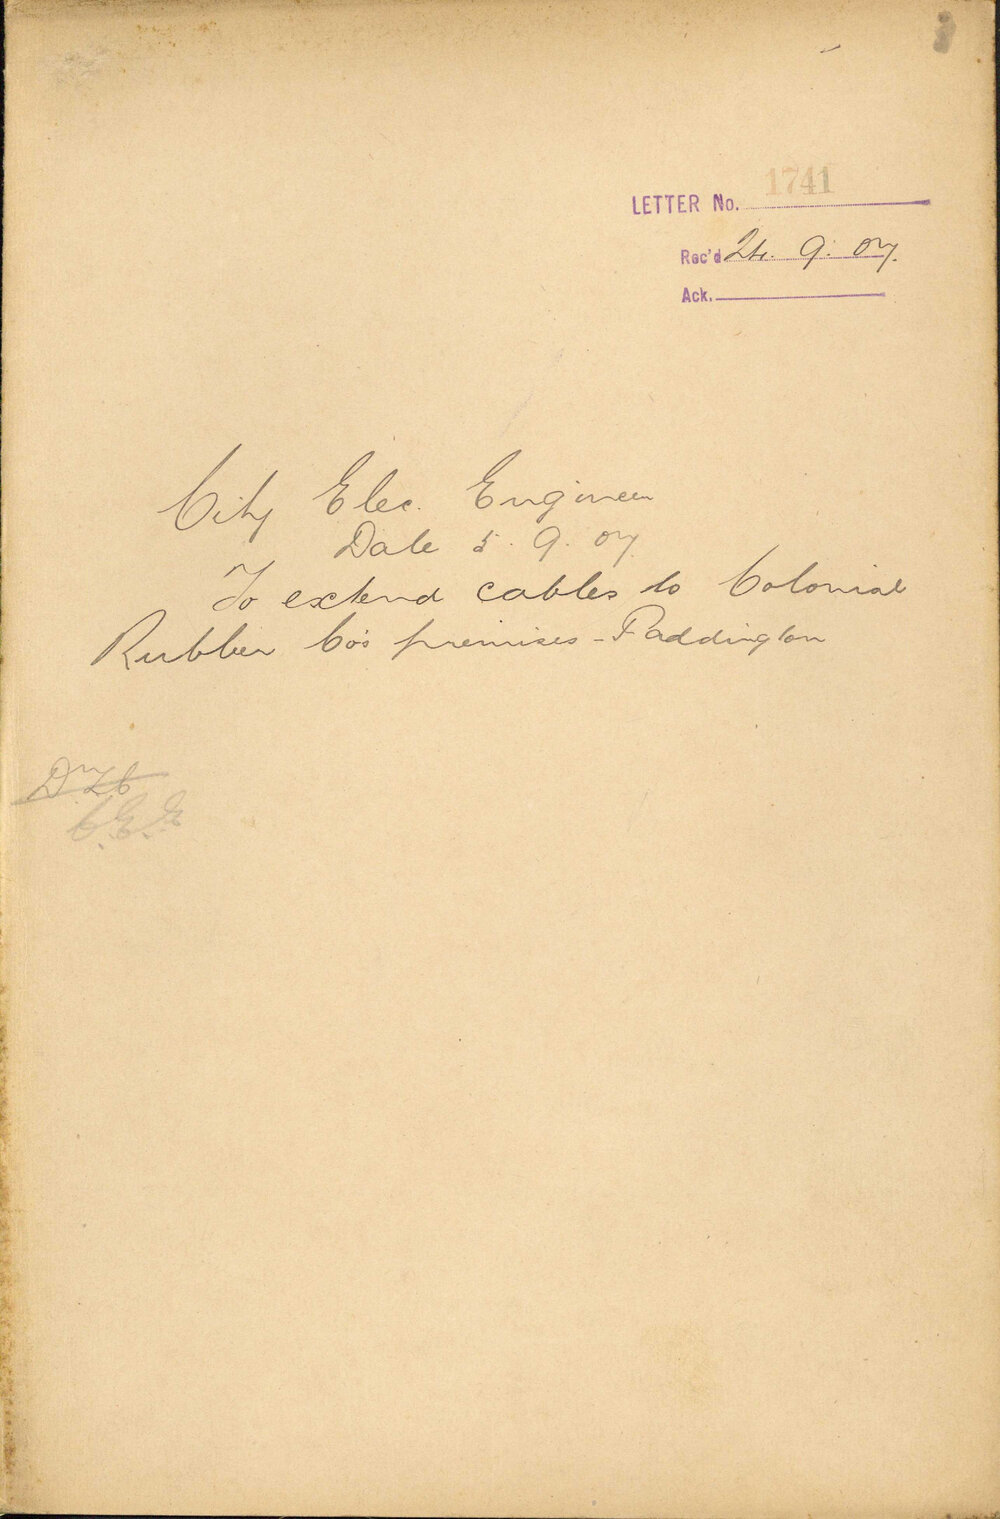 LETTER No. 1741
Rec'd 24. 9. 07.
Ack.
City Elec. Engineer
Date 5. 9. 07
To extend cables to Colonial
Rubber Co's premises - Paddington
C.E.E